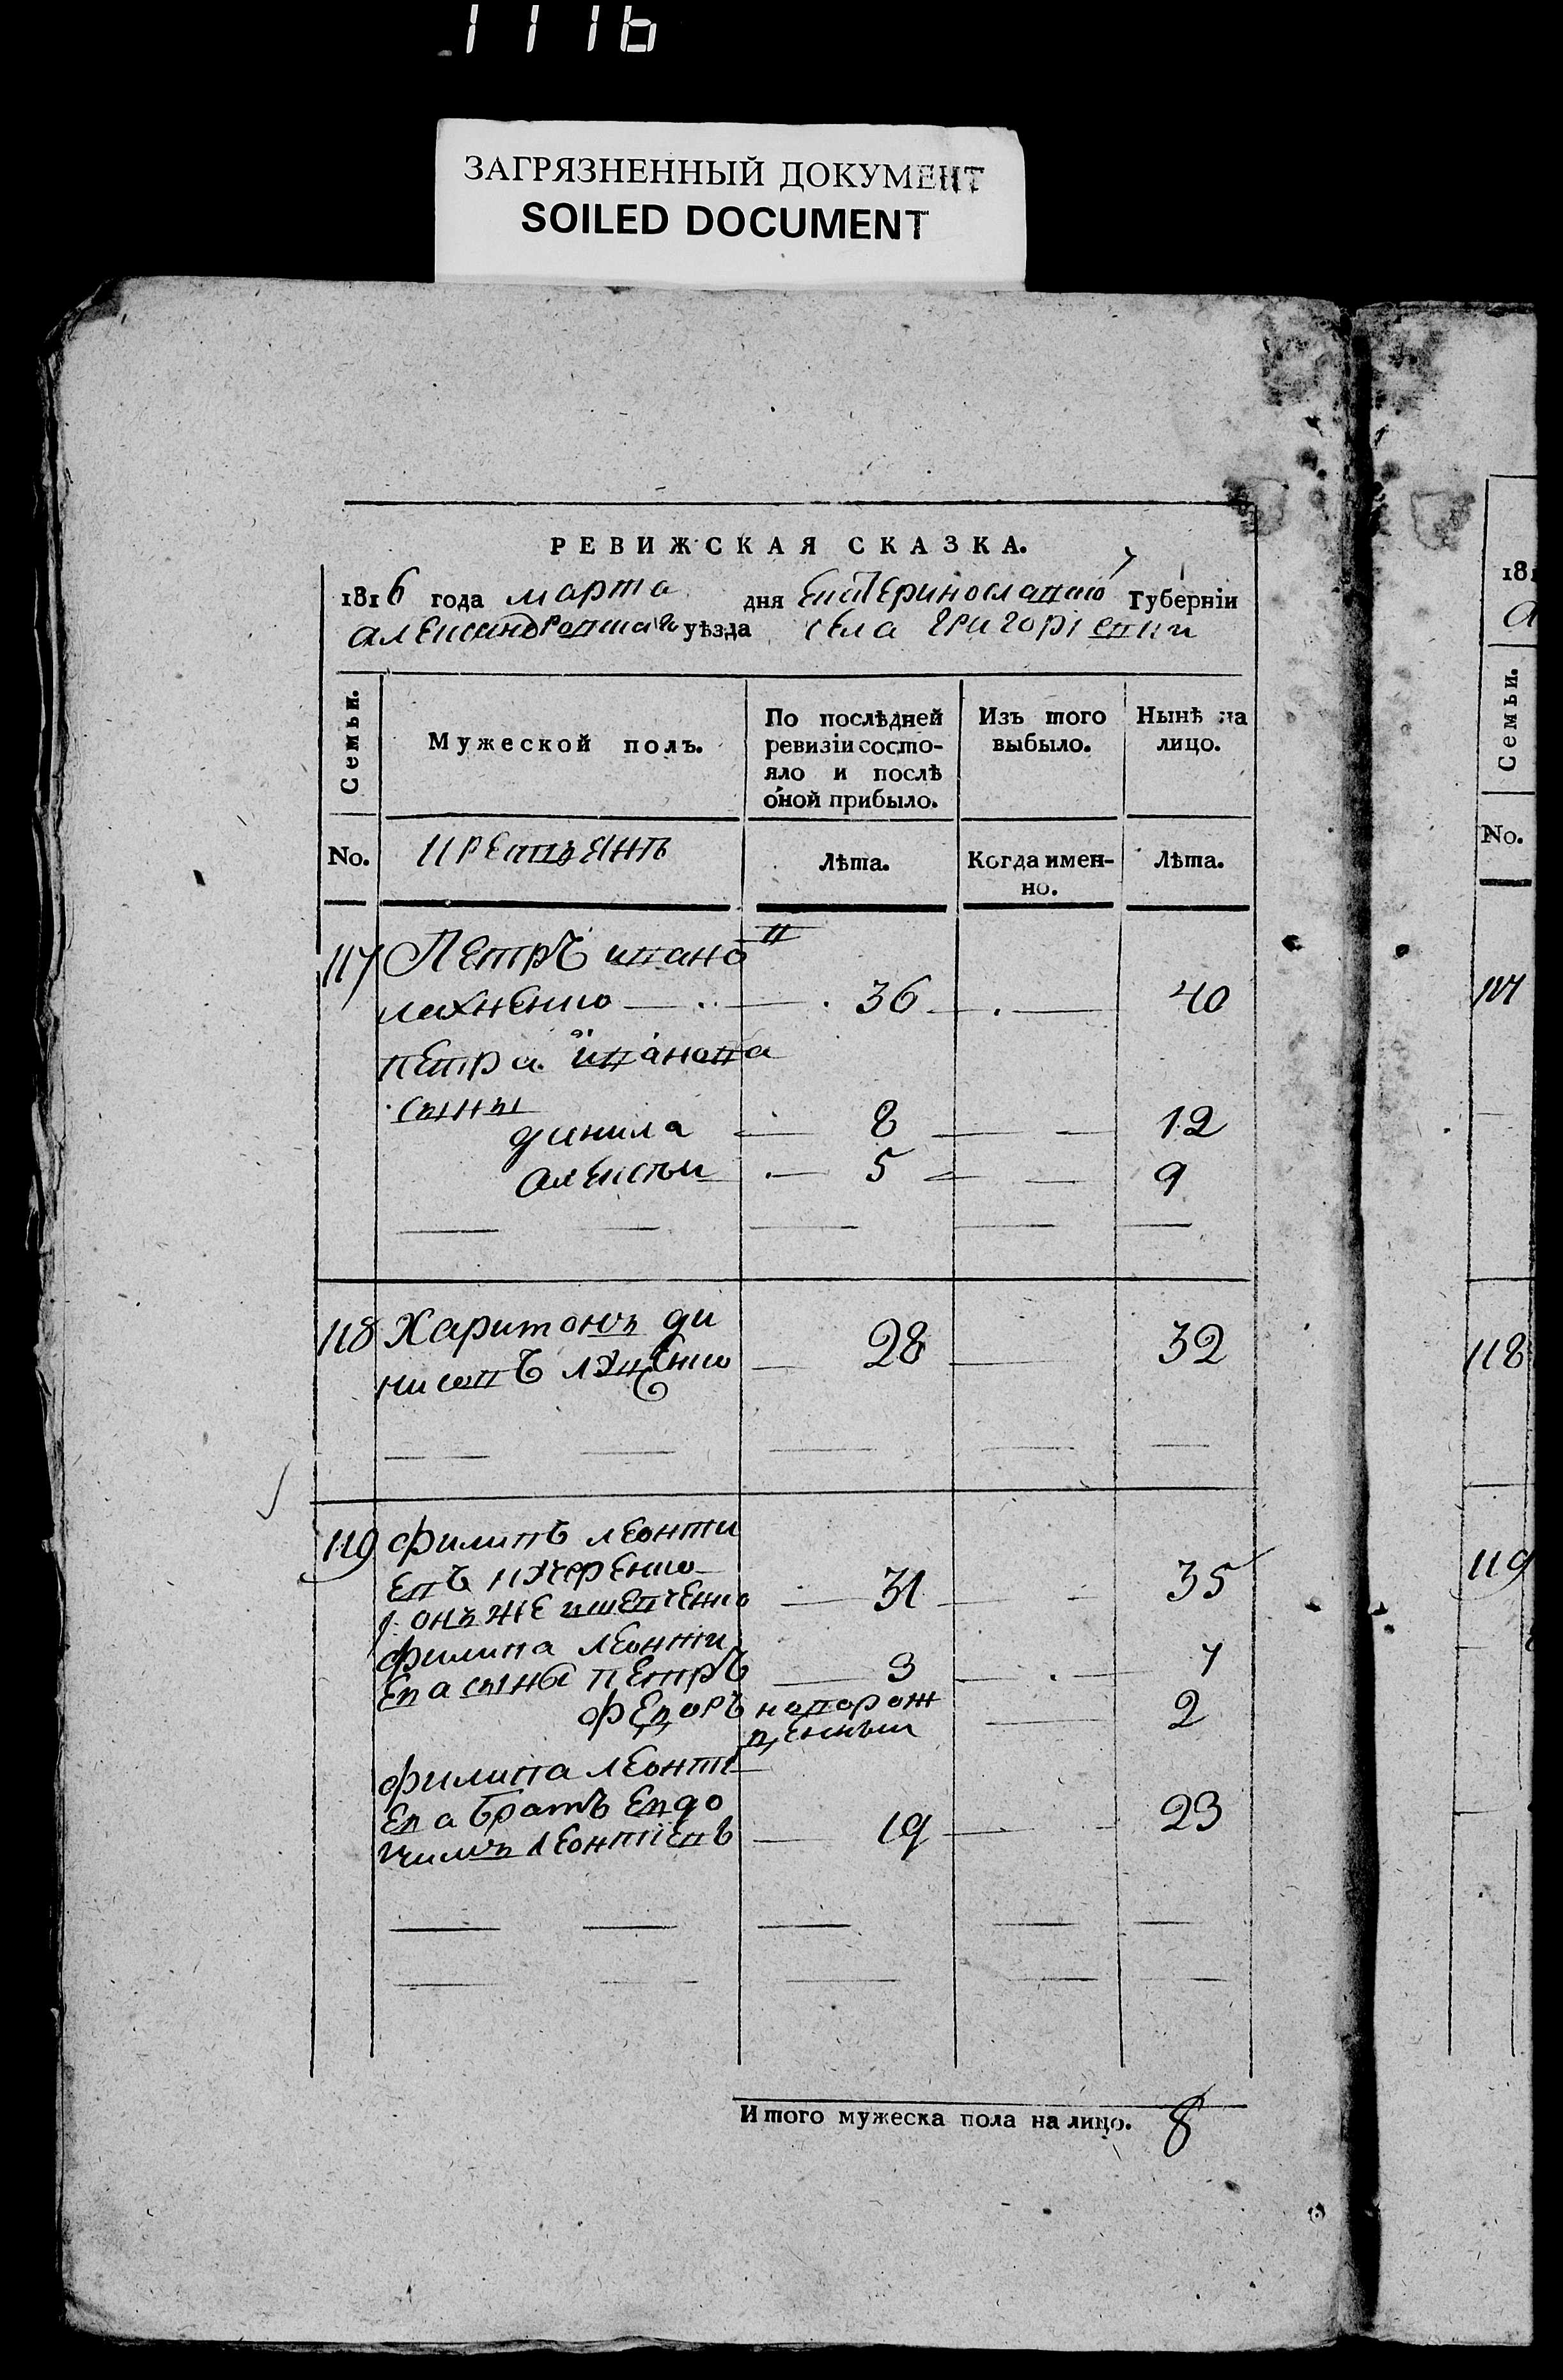 1116
ЗАГРЯЗНЕННЫЙ ДОКУМЕНТ
SOILED DOCUMENT
РЕВИЖСКАЯ СКАЗКА.
1816 года марта дня Екатеринославско Губерніи
александровскаго уѣзда села григоріевки
Семьи.
Мужеской полъ.
По послѣдней ревизіи состо-
яло и послѣ
оной прибыло.
Изъ того
выбыло.
Нынѣ на
лицо.
No.
Лѣта.
Когда имен-
но.
Лѣта.
117 Петръ ивановъ
лахненко 36 40
петра иванова
сыны
данила 8 12
алексѣи 5 9
118 Харитонъ ди
нисовъ 28 32
119 филипъ леонти
евъ кучеренко
онъ же ивченко 31 35
филипа леонти
ева сыны петръ 3 7
федоръ новорож
денныи 2
филипа леонті
ева братъ евдо
кимъ леонтіевъ 19 23
Итого мужеска пола на лицо. 8
181
Семьи.
No.
117
118
119